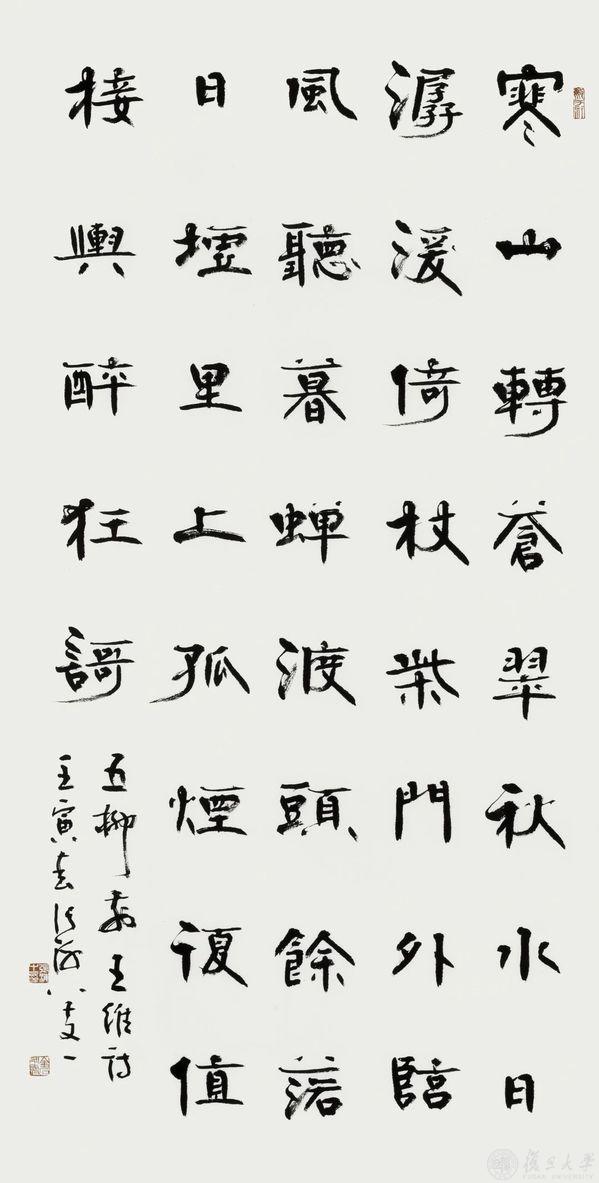 寒山轉蒼翠秋水日
潺湲倚杖柴門外臨
風聽暮蝉渡頭餘落
日墟里上孤煙復值
接輿醉狂謌
五柳前王維詩
壬寅春張海八十又一
復旦大學
FUDAN UNIVERSITY